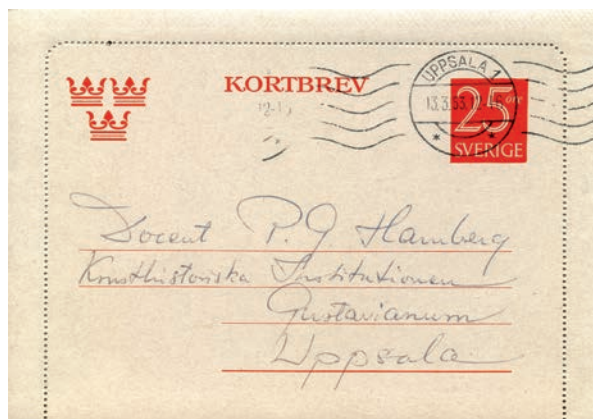 KORTBREV
UPPSALA 1
13.3.53.12
25 öre
SVERIGE
Docent P. G. Hamberg
Konsthistoriska Institutionen
Gustavianum
Uppsala